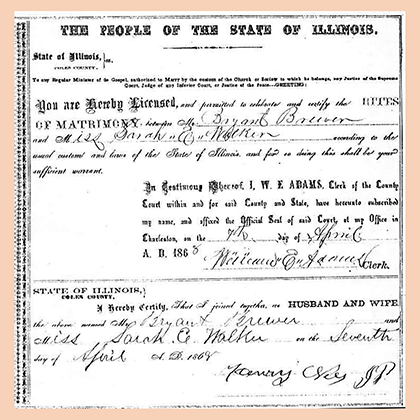 THE PEOPLE OF THE STATE OF ILLINOIS.
State of Illinois, } ss.
COLES COUNTY,
To any Regular Minister of the Gospel, authorized to Marry by the custom of the Church or Society to which he belongs, any Justice of the Supreme
Court, Judge of any Inferior Court, or Justice of the Peace—GREETING:
You are Hereby Licensed, and permitted to celebrate and certify the RITES
OF MATRIMONY, between Mr. Bryant Brewer
and Miss Sarah E Walker according to the
usual customs and laws of the State of Illinois, and for so doing this shall be your
sufficient warrant.
In Testimony Whereof, I, W. E. ADAMS, Clerk of the County
Court within and for said County and State, have hereunto subscribed
my name, and affixed the Official Seal of said Court, at my Office in
Charleston, on the 7th day of April
A. D. 1868
William E Adams Clerk.
STATE OF ILLINOIS, }
COLES COUNTY,
I Hereby Certify, That I joined together, as HUSBAND AND WIFE
the above named Mr Bryant Brewer and
Miss Sarah E Walker on the Seventh
day of April A. D. 1868
JP